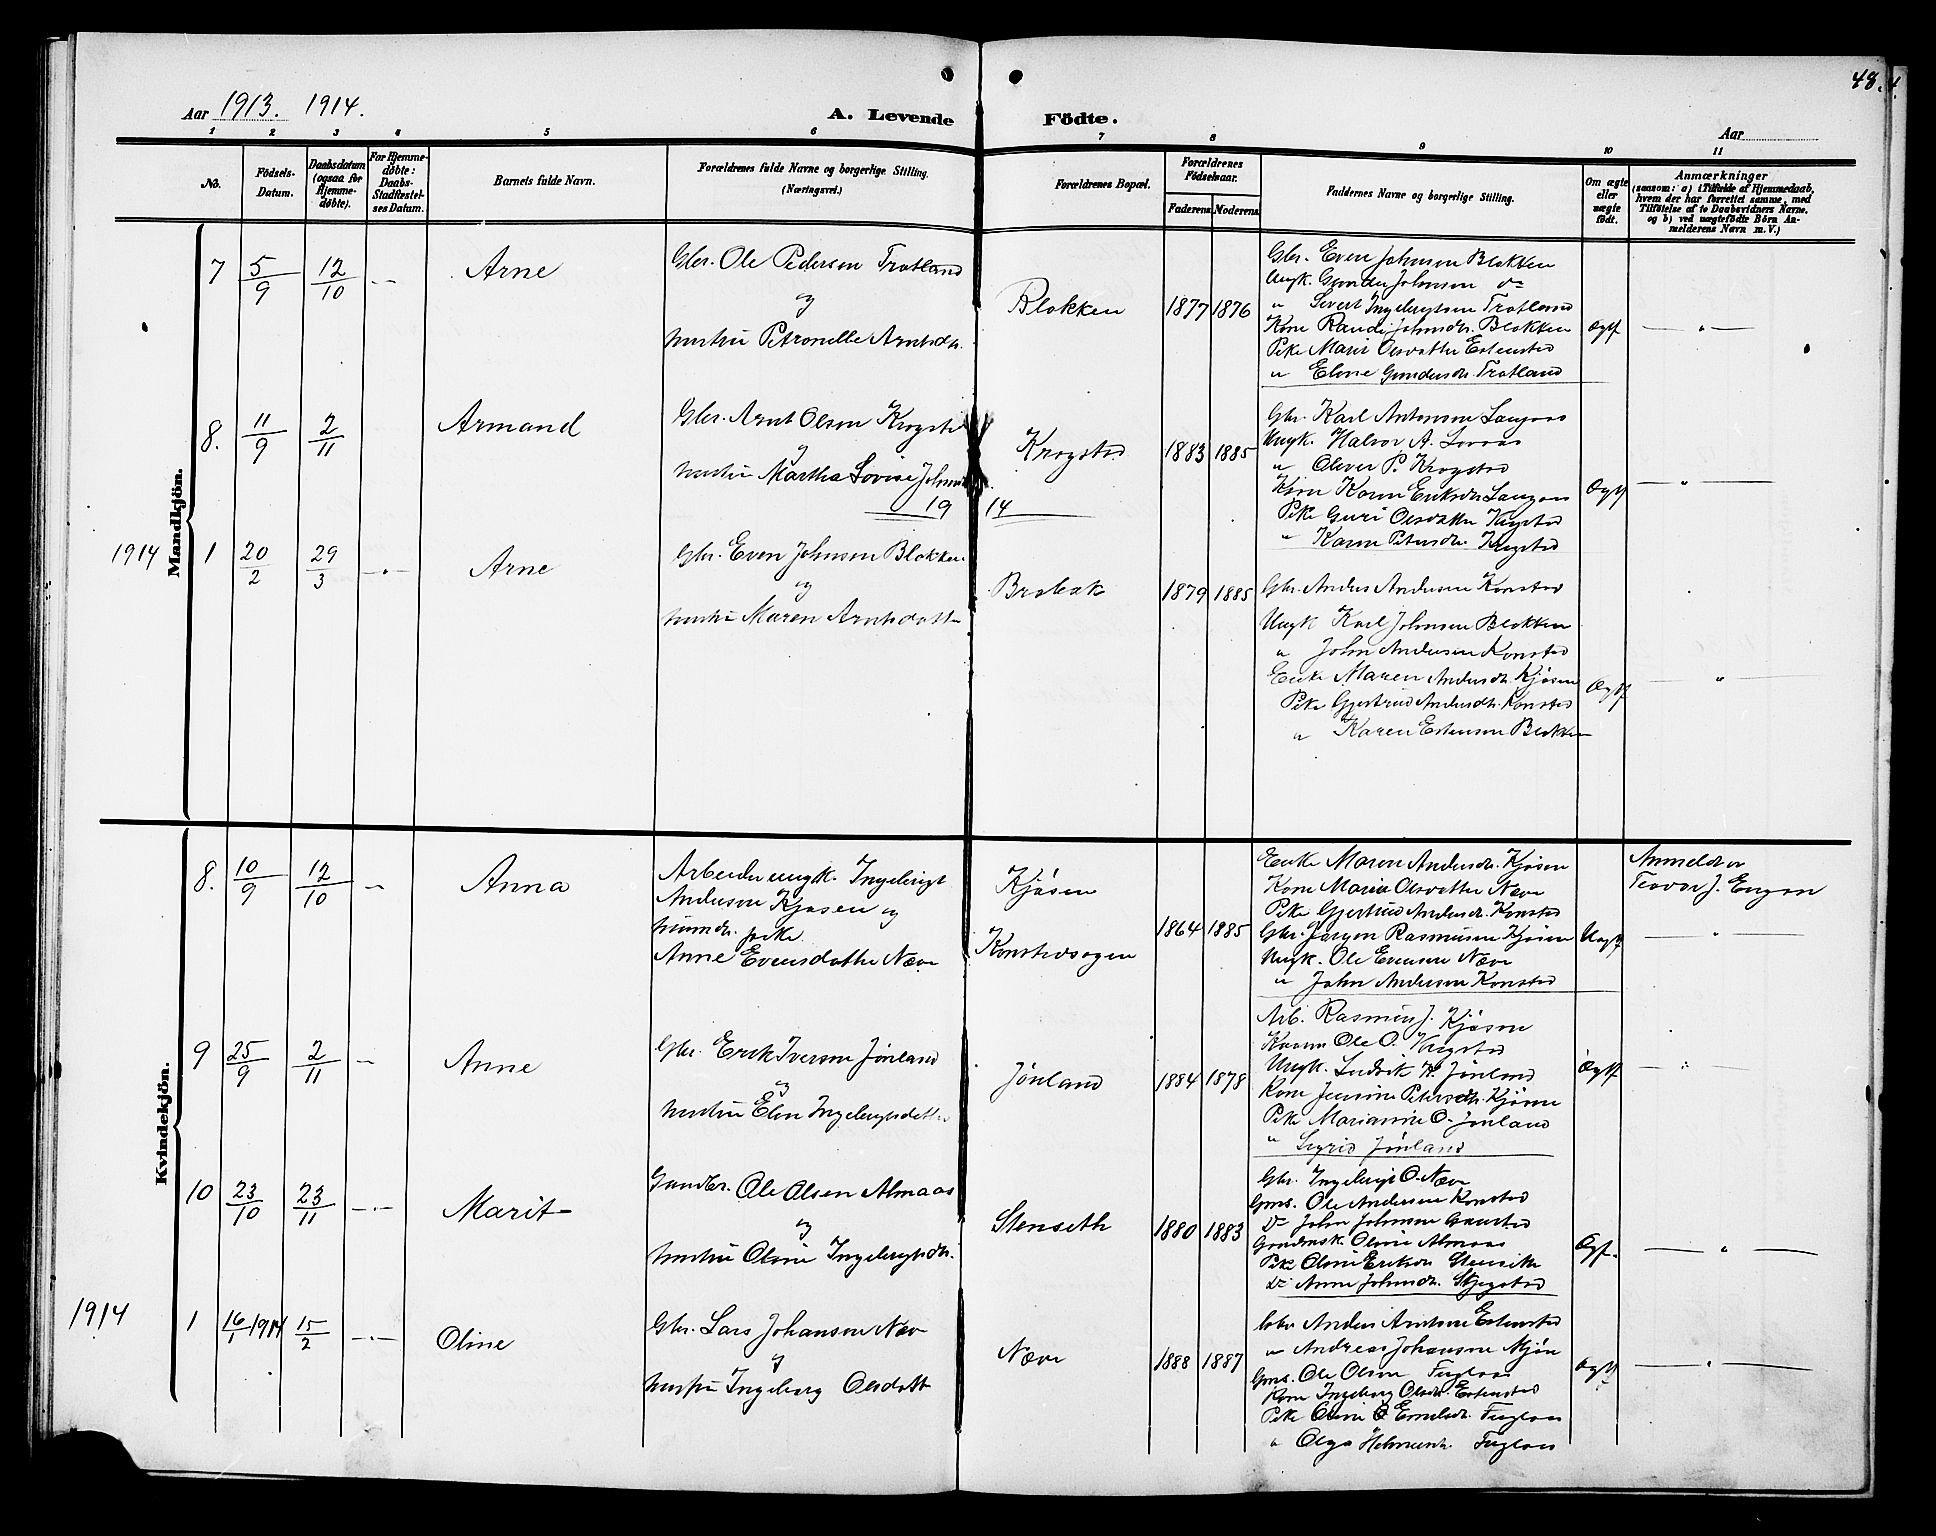 48.
Aar 1913. 1914. A. Levende Födte. Aar
1 2 3 4 5 6 7 8 9 10 11
No. Födsels-Datum. Daabsdatum (ogsaa for Hjemmedøbte). For Hjemmedøbte: Daabs-Stadfæstelses Datum. Barnets fulde Navn. Forældrenes fulde Navne og borgerlige Stilling. (Næringsvei.) Forældrenes Bopæl. Forældrenes Födselsaar. Faderens Moderens Faddernes Navne og borgerlige Stilling. Om ægte eller uægte födt. Anmærkninger (saasom: a) i Tilfælde af Hjemmedaab, hvem der har forrettet samme, med Tilföielse af to Daabsvidners Navne, og b) ved uægtefödte Börn Anmelderens Navn m. V.)
Mandkjön.
7 5/9 12/10 — Arne
Gbr. Ole Pedersen Trotland
og
hustru Petronelle Arntsdt.
Blokken 1877 1876
Gbr. Even Johnsen Blokken
Ungk. Gunder Johnsen do
" Sivert Ingebrigtsen Trotland
Kone Randi Johnsdt. Blokken
Pike Marit Olsdatter Estenstad
" Eline Gundersdt. Trotland
Ægtf — " —
8. 11/9 2/11 Armand
Gbr. Arnt Olsen Krogstad
og
hustru Martha Lovise Johnsd
Krogstad 1883 1885
Gbr. Karl Antonsen Langaas
Ungk. Halvor A. Loraas
" Oliver P. Krogstad
Kone Karen Eriksdt. Langaas
Pike Guri Olsdatter Krogstad
" Karen Petersdt. Krogstad
Ægtf — " —
1914
1914 1 20/2 29/3 — " — Arne
Gbr. Even Johnsen Blokken
og
hustru Maren Arntsdatter
Brobak 1879 1885
Gbr. Anders Andersen Konstad
Ungk Karl Johnsen Blokken
" John Andersen Konstad
Enke Maren Andersdt. Kjösen
Pike Gjertrud Andersdt. Konstad
" Karen Estensen Blokken
Ægtf — " —
Kvindekjön.
8. 10/9 12/10 — Anna
Arbeider ungk. Ingebrigt
Andersen Kjøsen og
pike
Anne Evensdatter Næve
Kjøsen
Konstadsagen
1864 1885
Enke Maren Andersdt. Kjösen
Kone Marie Olsdatter Næve
Pike Gjertrud Andersdt. Konstad
Gbr. Jørgen Rasmusen Kjösen
Ungk. Ole Evensen Næve
" John Andersen Konstad
Uægtf
Anmelder
J. Engan
— " —
9 25/9 2/11 — Anne
Gbr. Erik Iversen Jønland
og
hustru Elen Ingebrigtsdatter
Jønland 1884 1878
Arb. Rasmus J. Kjøsen
Ole O. Krogstad
Ungk. Ludvik H. Jønland
Kone Jensine Petersdt. Kjösen
Pike Marianne O. Jønland
" Sigrid Jønland
Ægtf — " —
10 23/10 23/11 — " — Marit
Gaardbr. Ole Olsen Almaas
og
hustru Oline Ingebrigtsdt.
Stenseth 1880 1883
Gbr. Ingebrigt O. Næve
Gms. Ole Andersen Konstad
Do John Johnsen Gaustad
Oline Almaas
Pike Oline Eriksdt. Stenseth
Do Anne Johnsdt. Skjegstad
Ægtf. — " —
1914 1 16/1 1914 15/2 — " — Oline
Gbr. Lars Johansen Næve
og
hustru Ingeborg Olsdatt
Næve 1888 1887
Gbr Anders Arntsen Estenstad
" Andreas Johansen Mjøn
Gms. Ole Olsen Fuglaas
Kone Ingeborg Olsdt. Estenstad
Pike Oline O Fuglaas
" Olga Fuglaas
Ægtf — " —